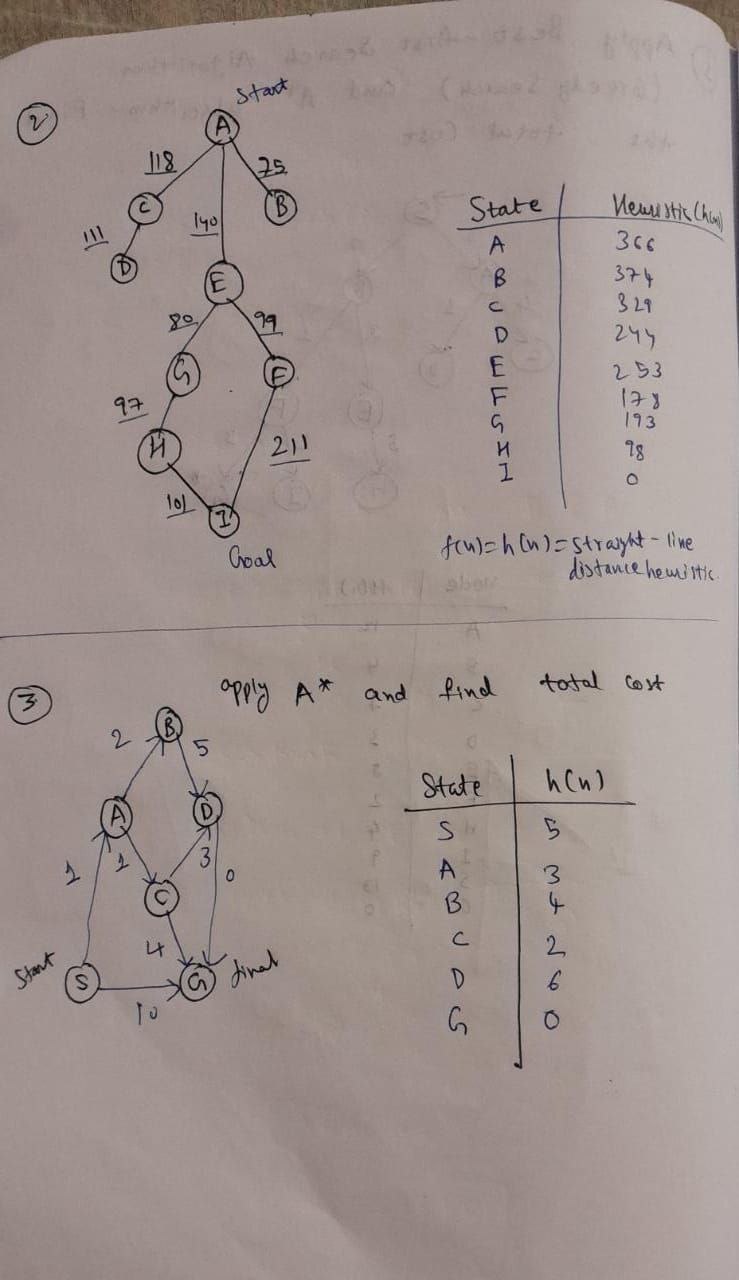 ②
Start
A
118
75
C
B
140
111
D
E
80
99
G
F
97
H
211
101
I
Goal
State Heuristic (h(n))
A 366
B 374
C 329
D 244
E 253
F 178
G 193
H 98
I 0
f(n)=h(n)=straight-line
distance heuristic.
③ apply A* and find total cost
B
2
5
A
D
1
1
3
0
C
4
Start
S
G
final
10
State h(n)
S 5
A 3
B 4
C 2
D 6
G 0